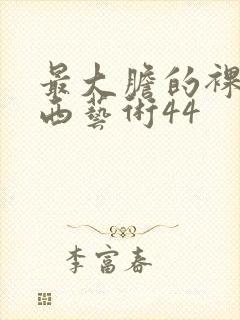 最大膽的裸
西藝術44
李富春